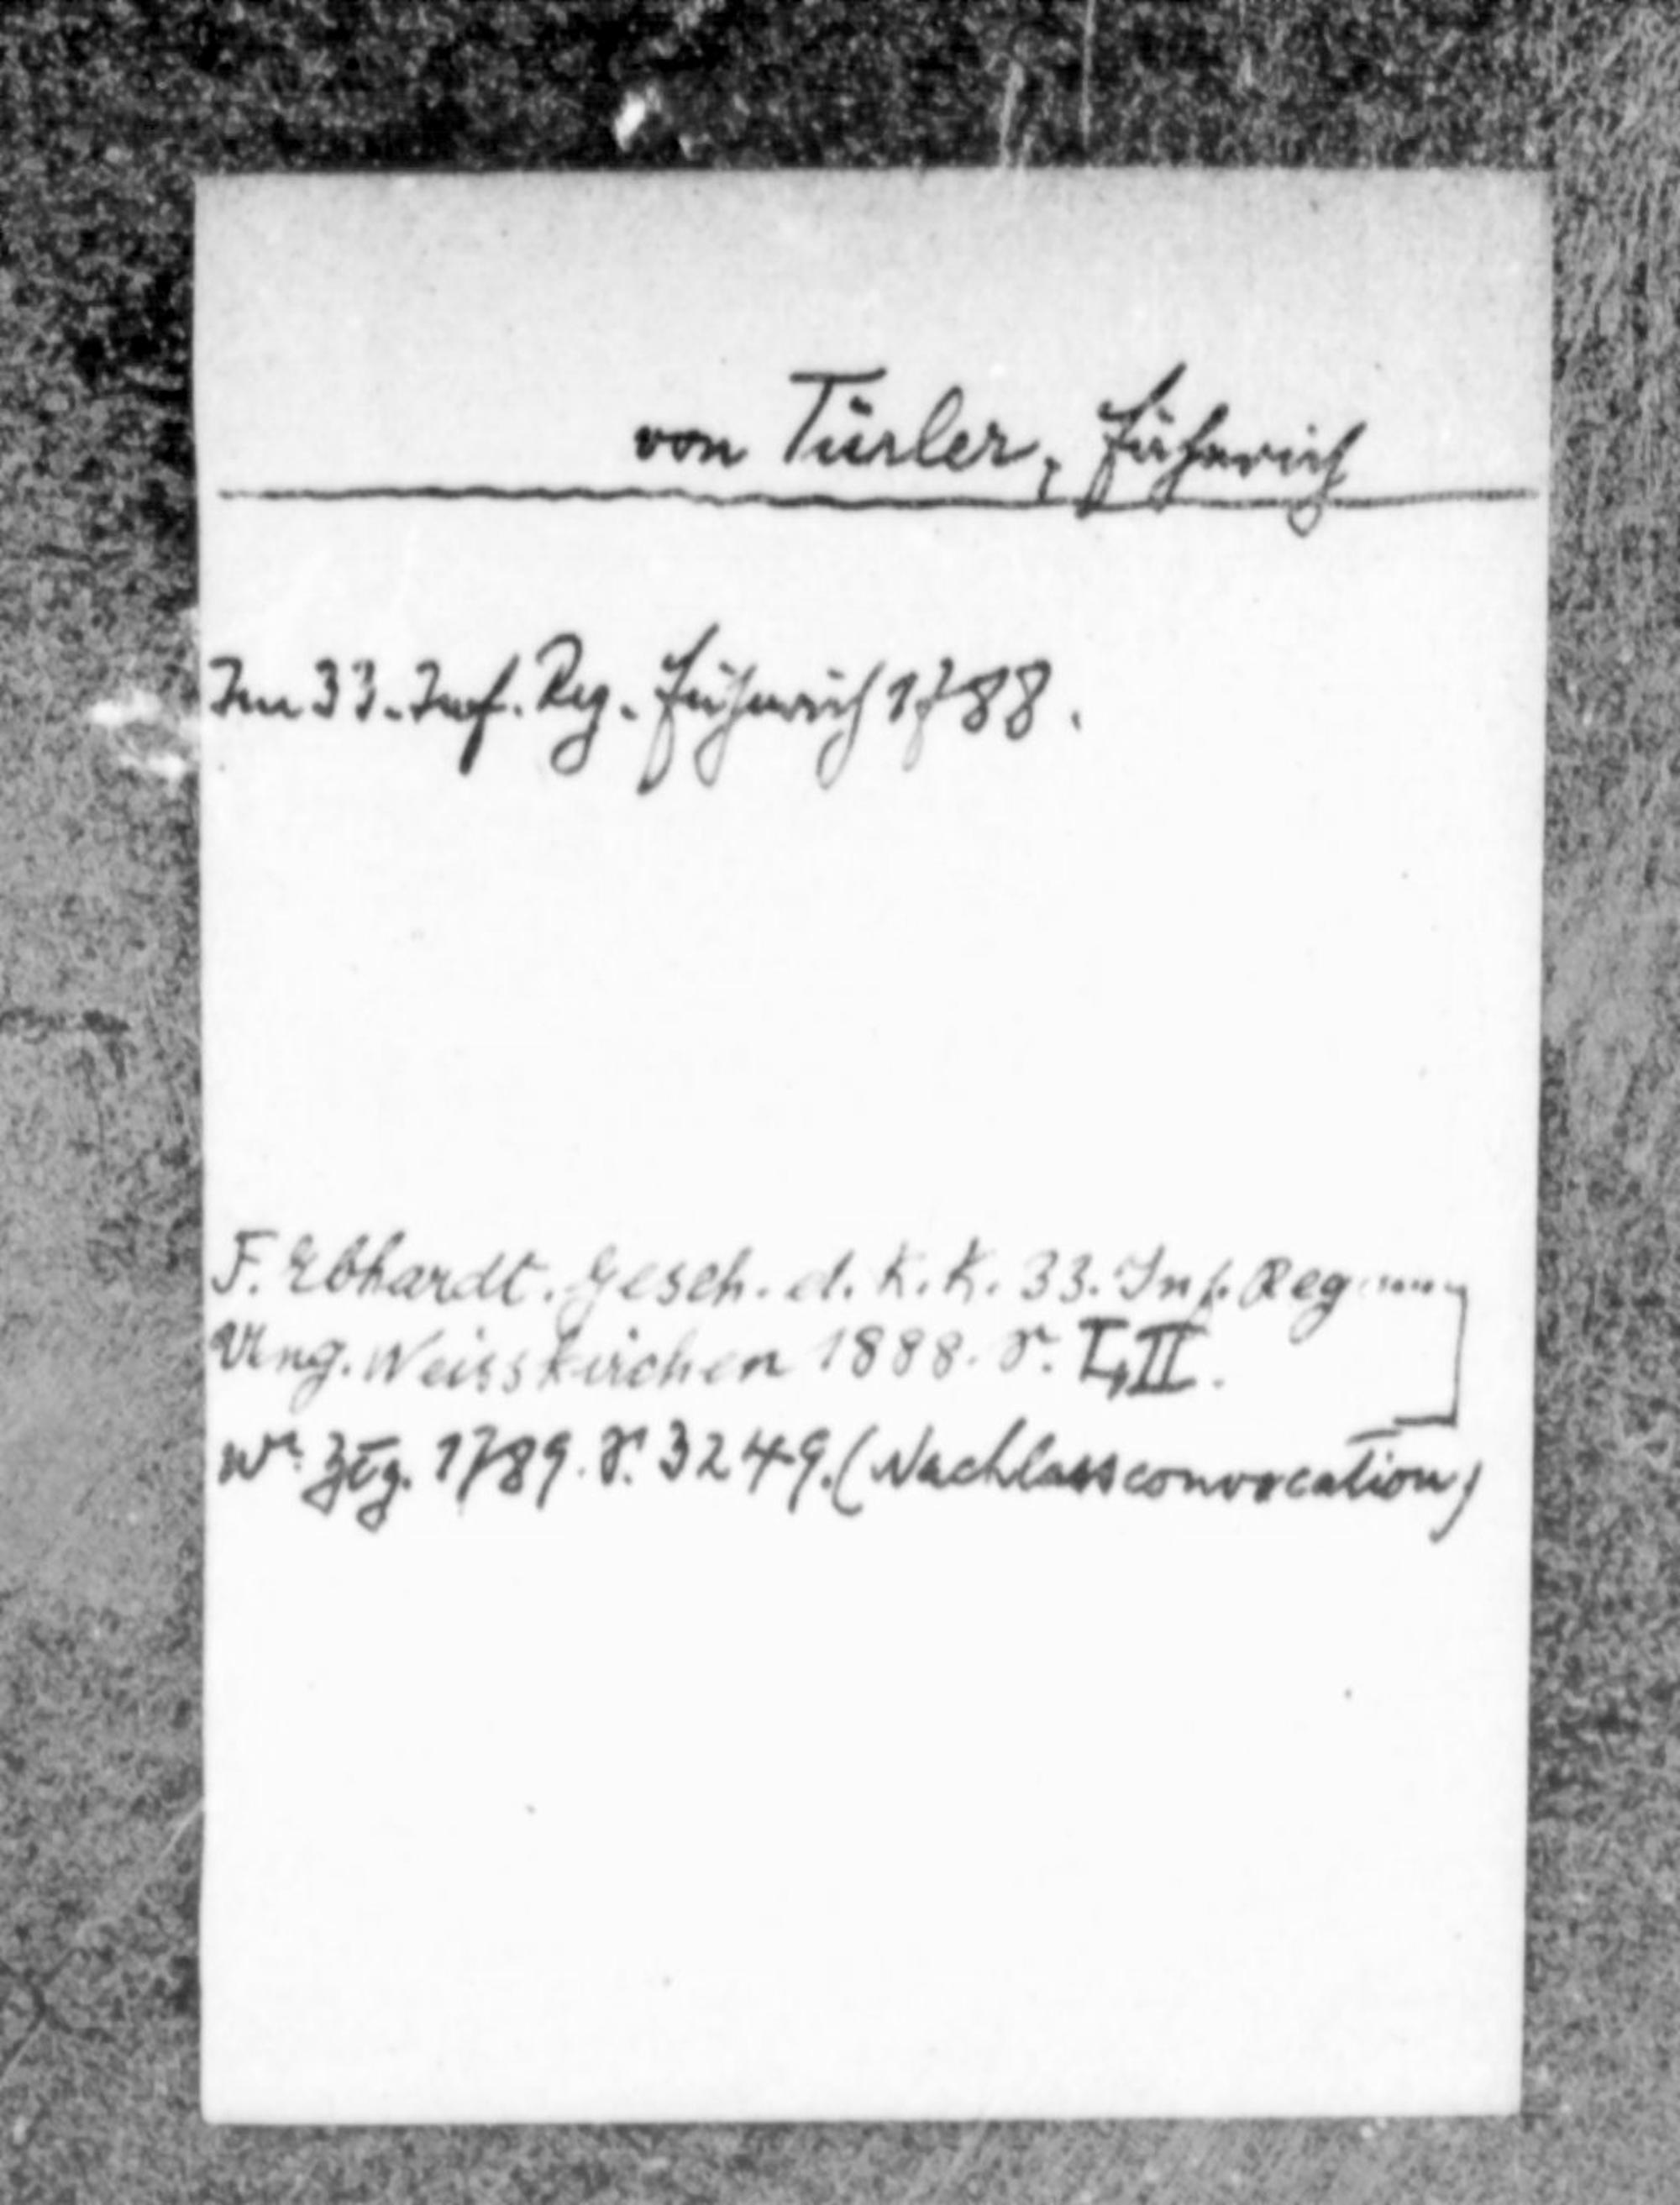 von Türler, Fähnrich
Im 33. Inf. Reg. Fähnrich 1788.
F. Ebhardt. Gesch. d. K. K. 33. Inf. Reg
Ung. Weisskirchen 1888. S. I, II.
Wr. Ztg. 1789. S. 3249. (Nachlassconvocation)